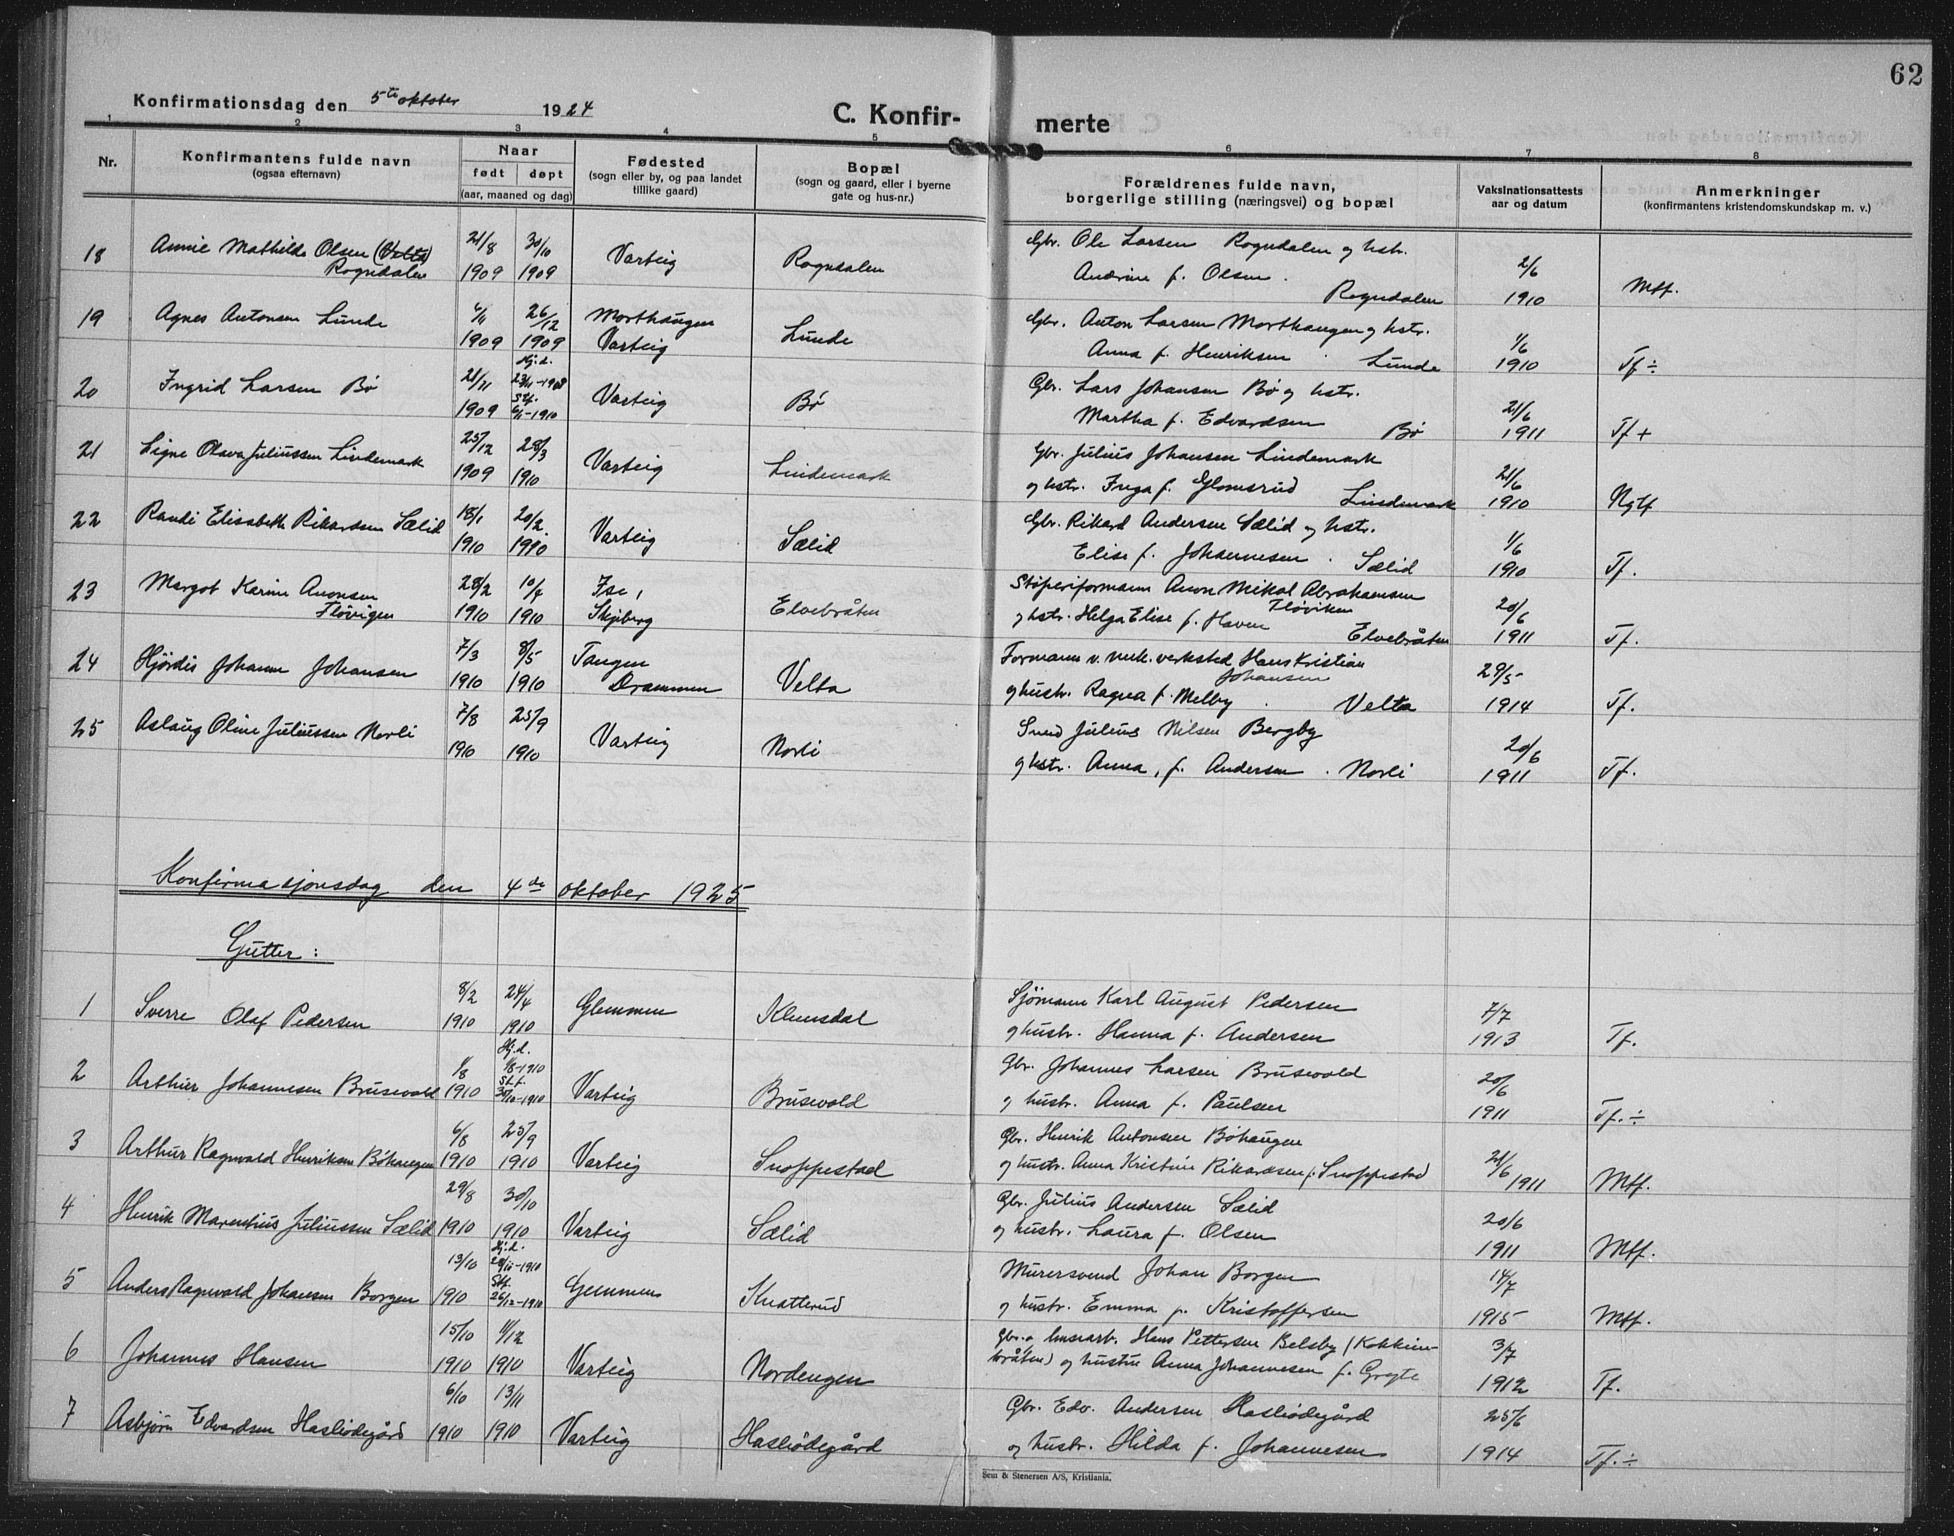 62
Konfirmationsdag den 5te oktober 1924
C. Konfir- merte
1 2 3 4 5 6 7 8
Nr.
Konfirmantens fulde navn
(ogsaa efternavn)
Naar
født døpt
(aar, maaned og dag)
Fødested
(sogn eller by, og paa landet
tillike gaard)
Bopæl
(sogn og gaard, eller i byerne
gate og hus-nr.)
Forældrenes fulde navn,
borgerlige stilling (næringsvei) og bopæl
Vaksinationsattests
aar og datum
Anmerkninger
(konfirmantens kristendomskundskap m. v.)
18 Annie Mathilde Olsen (Velta) 21/8 30/10 Varteig Rogndalen Gbr. Ole Larsen Rogndalen og hstr. 2/6 Mtf.
Rogndalen 1909 1909 Andrine f. Olsen. Rogndalen 1910
19 Agnes Antonsen Lunde 6/11 26/12 Morthaugen Lunde Gbr. Anton Larsen Morthaugen og hstr. 1/6
1909 1909 Varteig Anna f. Henriksen. Lunde 1910 Tf ÷
20 Ingrid Larsen Bø 21/11 Hj.d. 23/11-1908 Varteig Bø Gbr. Lars Johansen Bø og hstr. 21/6
1909 Stf. 6/1-1910 Martha f. Edvardsen Bø 1911 Tf +
21 Signe Olava Juliussen Lindemark 25/12 28/3 Varteig Lindemark Gbr. Julius Johansen Lindemark 21/6
1909 1910 og hstr. Inga f. Glomsrud Lindemark 1910 Ngtf
22 Randi Elissbeth Rikardsen Sælid 18/1 20/2 Varteig Sælid Gbr. Rikard Andersen Sælid og hstr. 1/6
1910 1910 Elise f. Johannesen. Sælid 1910 Tf.
23 Margot Karine Anonsen 28/2 10/4 Ise, Elvebråten Støperiformann Anon Mikal Abrahamsen 20/6
Fløvigen 1910 1910 Skjeberg Fløviken
og hstr. Helga Elise f. Haven Elvebråten 1911 Tf.
24 Hjørdis Johanne Johansen 7/3 8/5 Tangen Velta Formann v. mek. verksted Hans Kristian 29/5
1910 1910 Drammen Johansen
og hustr. Ragna f. Melby. Velta 1914 Tf.
25 Aslaug Oline Juliussen Norli 7/8 25/9 Varteig Norli Smed Julius Nilsen Bergby 20/6
1910 1910 og hstr. Anna, f. Andersen. Norli 1911 Tf.
Konfirmasjonsdag den 4de oktober 1925
Gutter:
1 Sverre Olaf Pedersen 8/2 24/4 Glemmen Klemsdal Sjømann Karl August Pedersen 7/7
1910 1910 og hustr. Hanna f. Andersen 1913 Tf.
2 Arthur Johannesen Brusevold 1/8 Hj.d. 1/8-1910 Varteig Brusevold Gbr. Johannes Larsen Brusevold 20/6
1910 St.f. 30/10-1910 og hustr. Anna f. Paulsen 1911 Tf. ÷
3 Arthur Ragnvald Henriksen Bøhaugen 6/8 25/9 Varteig Snoppestad Gbr. Henrik Antonsen Bøhaugen 21/6
1910 1910 og hustr. Anna Kristine Rikardsen f. Snoppestad 1911 Mtf.
4 Henrik Marentius Juliussen Sælid 29/8 30/10 Varteig Sælid Gbr. Julius Andersen Sælid 20/6
1910 1910 og hustr. Laura f. Olsen 1911 Mtf.
5 Anders Ragnvald Johansen Borgen 13/10 Hj.d. 28/10-1910 Glemmen Knatterud Murersvend Johan Borgen 14/7
1910 Stf. 26/12-1910 og hustr. Emma f. Kristoffersen 1915 Mtf.
6 Johannes Hansen 15/10 11/12 Varteig Nordengen Gbr. a husarb. Hans Pettersen Belsby (Kokkim- 3/7
1910 1910 bråten) og hustru Anna Johannesen f. Grøgte 1912 Tf.
7 Asbjørn Edvardsen Hasliødegård 6/10 13/11 Varteig Hasliødegård Gbr. Edv. Andersen Hasliødegård 25/6
1910 1910 og hustr. Hilda f. Johannesen 1914 Tf. ÷
Sem & Stenersen A/S, Kristiania.